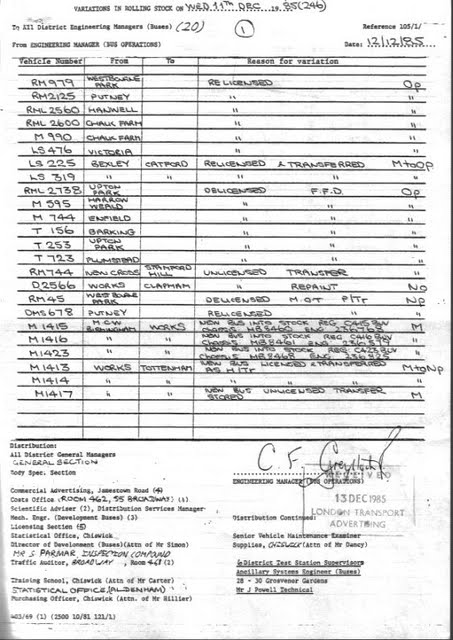 VARIATIONS IN ROLLING STOCK ON WED 11TH DEC 1985 (246)
To All District Engineering Managers (Buses) (20) (1) Reference 105/1/
From ENGINEERING MANAGER (BUS OPERATIONS) Date: 12/12/85
Vehicle Number From To Reason for variation
RM979 WESTBOURNE PARK RELICENSED Op
RM2125 PUTNEY " "
RML2560 HANWELL " "
RML 2600 CHALK FARM " "
M 990 CHALK FARM " "
LS 476 VICTORIA " "
LS 225 BEXLEY CATFORD RELICENSED & TRANSFERRED M to Op
LS 319 " " " " "
RML 2738 UPTON PARK DELICENSED F.F.D. Op
M 595 HARROW WEALD " " "
M 744 ENFIELD " " "
T 156 BARKING " " "
T 253 UPTON PARK " " "
T 723 PLUMSTEAD " " "
RM744 NEW CROSS STAMFORD HILL UNLICENSED TRANSFER "
D2566 WORKS CLAPHAM " REPAINT No
RM45 WESTBOURNE PARK DELICENSED M.O.T PITr Np
DMS678 PUTNEY RELICENSED " "
M1415 M.C.W BIRMINGHAM WORKS NEW BUS INTO STOCK REG C415 BUV CHASSIS MB8460 ENG M
M1416 " " NEW BUS INTO STOCK REG C416 BUV CHASSIS MB8461 ENG "
M1423 " " NEW BUS INTO STOCK REG C423 BUV CHASSIS MB8468 ENG "
M1413 WORKS TOTTENHAM NEW BUS LICENSED & TRANSFERRED AS M ITr M to Np
M1414 " " " " " "
M1417 " " NEW BUS UNLICENSED TRANSFER STORED M
Distribution:
All District General Managers
GENERAL SECTION
Body Spec. Section
Commercial Advertising, Jamestown Road (4)
Costs Office (ROOM 462, 55 BROADWAY) (1)
Scientific Adviser (2), Distribution Services Manager
Mech. Engr. (Development Buses) (3)
Licensing Section (5)
Statistical Office, Chiswick
Director of Development (Buses)(Attn of Mr Simon)
MR S PARMAR, INSPECTION COMPOUND
Traffic Auditor, BROADWAY, Room (2)
Training School, Chiswick (Attn of Mr Carter)
STATISTICAL OFFICE (ALDENHAM)
Purchasing Officer, Chiswick (Attn. of Mr Hillier)
403/69 (1) (2500 10/81 121/1)
C. F.
ENGINEERING MANAGER (BUS OPERATIONS)
RECEIVED
13 DEC 1985
LONDON TRANSPORT
ADVERTISING
Distribution Continued:
Senior Vehicle Maintenance Examiner
Supplies, CHISWICK (Attn of Mr Dancy)
6 District Test Station Supervisors
Ancillary Systems Engineer (Buses)
28 - 30 Grosvenor Gardens
Mr J Powell Technical